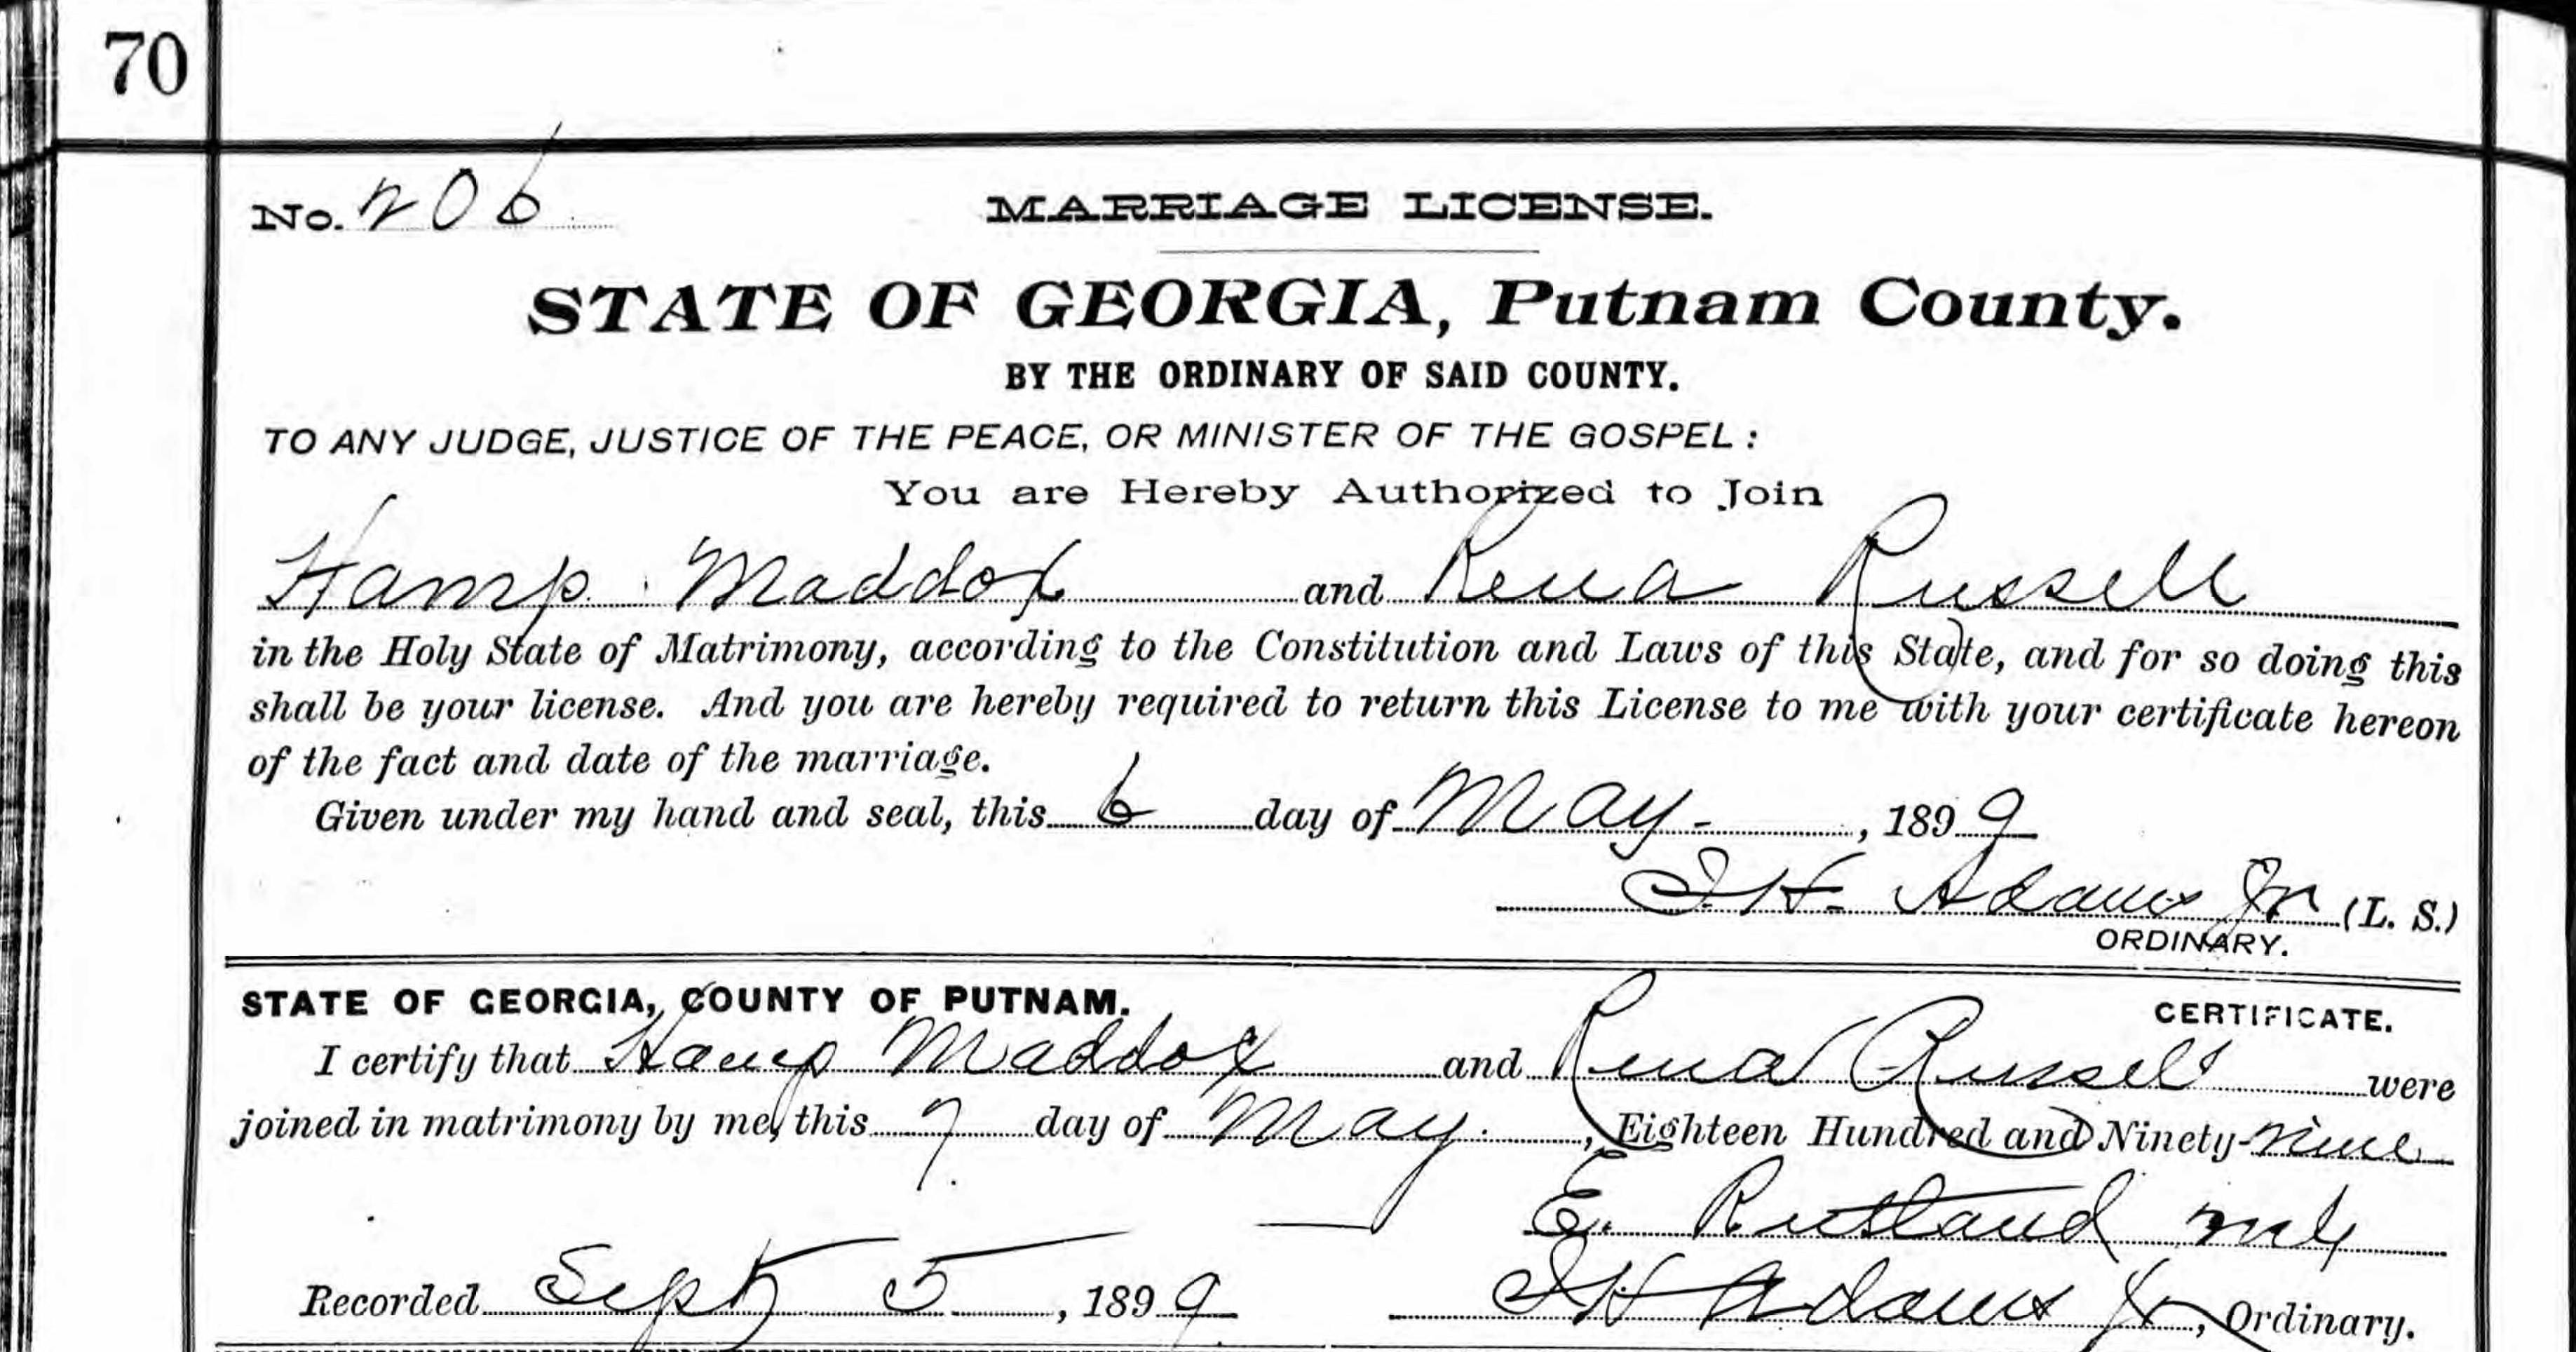 70
No. 206 MARRIAGE LICENSE.
STATE OF GEORGIA, Putnam County.
BY THE ORDINARY OF SAID COUNTY.
TO ANY JUDGE, JUSTICE OF THE PEACE, OR MINISTER OF THE GOSPEL:
You are Hereby Authorized to Join
Hamp Maddox and Rena Russell
in the Holy State of Matrimony, according to the Constitution and Laws of this State, and for so doing this
shall be your license. And you are hereby required to return this License to me with your certificate hereon
of the fact and date of the marriage.
Given under my hand and seal, this 6 day of May, 1899
Adams Jr (L. S.)
ORDINARY.
STATE OF GEORGIA, COUNTY OF PUTNAM. CERTIFICATE.
I certify that Hamp Maddox and Rena Russell were
joined in matrimony by me, this 7 day of May, Eighteen Hundred and Ninety-nine
E. Rutland
Recorded Sept 5, 1899 Adams Jr, Ordinary.